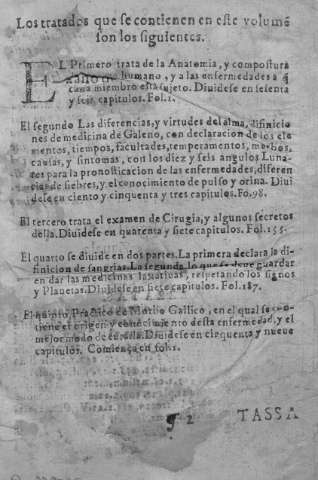 Los tratados que se contienen en este volumẽ
son los siguientes.
EL Primero trata de la Anatomia, y compostura
humano, y a las enfermedades a q̃
cada miembro està sujeto. Diuidese en sesenta
y seis capitulos. Fol.1.
El segundo Las diferencias, y virtudes del alma, difinicio
nes de medicina de Galeno, con declaracion de los ele
mentos, tiempos, facultades, temperamentos, 
causas, y sintomas, con los diez y seis angulos Luna-
res para la pronosticacion de las enfermedades, diferen
cias de fiebres, y el conocimiento de pulso y orina. Diui
dese en ciento y cinquenta y tres capitulos. Fo.98.
El tercero trata el examen de Cirugia, y algunos secretos
della. Diuidese en quarenta y siete capitulos. Fol.155.
El quarto se diuide en dos partes. La primera declara la di-
finicion de sangrias. La segunda lo que se deue guardar
en dar las medicinas laxatiuas, respetando los signos
y Planetas. Diuidese en siete capitulos. Fol.187.
El quinto, Practico de Morbo Gallico, en el qual se cõ-
tiene el origen y conocimiento desta enfermedad, y el
mejor modo de curarla. Diuidese en cinquenta y nueue
capitulos. Comiença en fol.1.
2 TASSA